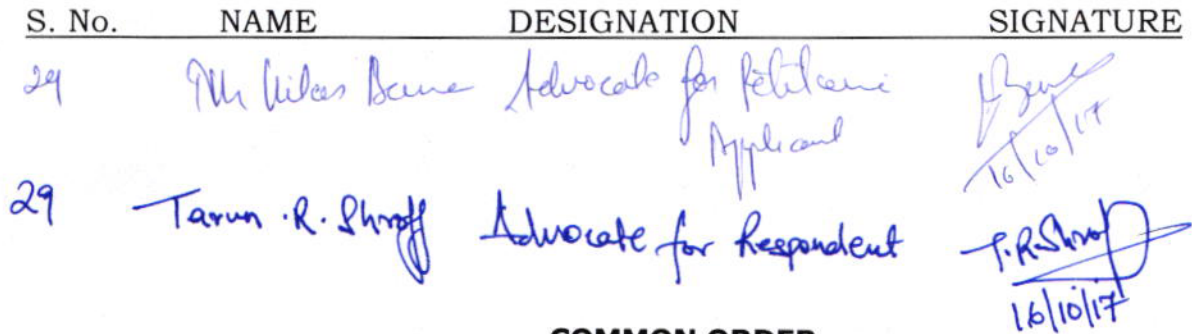 S. No. NAME DESIGNATION SIGNATURE
29 Mr Vikas Advocate for
Applicant
16/10/17
29 Tarun .R. Shroff Advocate for Respondent T.R.Shroff
16/10/17
COMMON ORDER